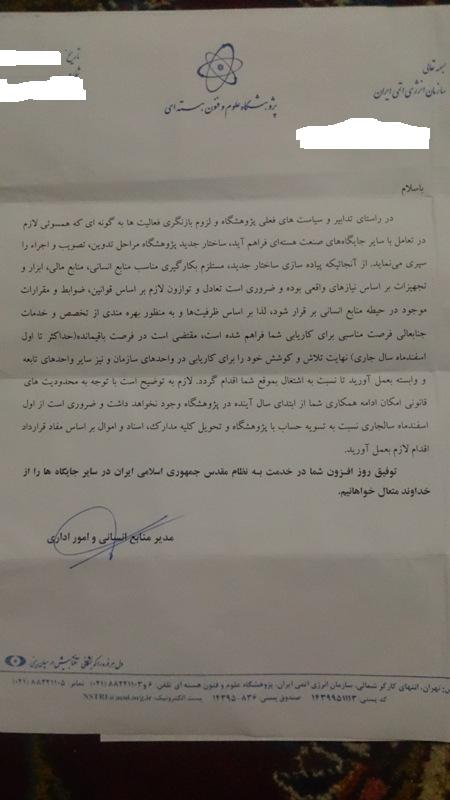 بسمه تعالی
سازمان انرژی اتمی ایران
پژوهشگاه علوم و فنون هسته ای
تاریخ:
باسلام
در راستای تدابیر و سیاست های فعلی پژوهشگاه و لزوم بازنگری فعالیت ها به گونه ای که همسوئی لازم
در تعامل با سایر جایگاه‌های صنعت هسته‌ای فراهم آید، ساختار جدید پژوهشگاه مراحل تدوین، تصویب و اجراء را
سپری می‌نماید. از آنجائیکه پیاده سازی ساختار جدید، مستلزم بکارگیری مناسب منابع انسانی، منابع مالی، ابزار و
تجهیزات بر اساس نیازهای واقعی بوده و ضروری است تعادل و توازون لازم بر اساس قوانین، ضوابط و مقرارات
موجود در حیطه منابع انسانی بر قرار شود، لذا بر اساس ظرفیت‌ها و به منظور بهره مندی از تخصص و خدمات
جنابعالی فرصت مناسبی برای کاریابی شما فراهم شده است، مقتضی است در فرصت باقیمانده(حداکثر تا اول
اسفندماه سال جاری) نهایت تلاش و کوشش خود را برای کاریابی در واحدهای سازمان و نیز سایر واحدهای تابعه
و وابسته بعمل آورید تا نسبت به اشتغال بموقع شما اقدام گردد. لازم به توضیح است با توجه به محدودیت های
قانونی امکان ادامه همکاری شما از ابتدای سال آینده در پژوهشگاه وجود نخواهد داشت و ضروری است از اول
اسفندماه سالجاری نسبت به تسویه حساب با پژوهشگاه و تحویل کلیه مدارک، اسناد و اموال بر اساس مفاد قرارداد
اقدام لازم بعمل آورید.
توفیق روز افزون شما در خدمت به نظام مقدس جمهوری اسلامی ایران در سایر جایگاه ها را از
خداوند متعال خواهانیم.
مدیر منابع انسانی و امور اداری
دل هر ذره را که بشکافی آفتابیش در میان بینی
تهران، انتهای کارگر شمالی، سازمان انرژی اتمی ایران، پژوهشگاه علوم و فنون هسته ای تلفن: ۶ و ۸۸۲۲۱۱۰۳ (۰۲۱) نمابر: ۸۸۲۲۱۱۰۵ (۰۲۱)
کد پستی: ۱۴۳۹۹۵۱۱۱۳ صندوق پستی: ۸۳۶-۱۴۳۹۵ پست الکترونیک: